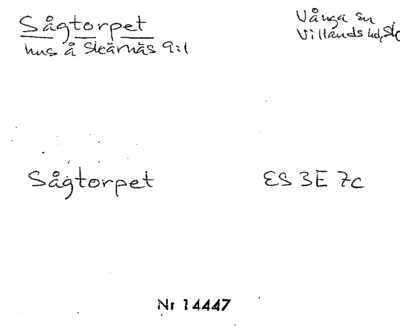 Sågtorpet
hus å Skärnäs 9:1
Vånga sn
Villands hd, Sk
Sågtorpet
ES 3E 7c
Nr 14447